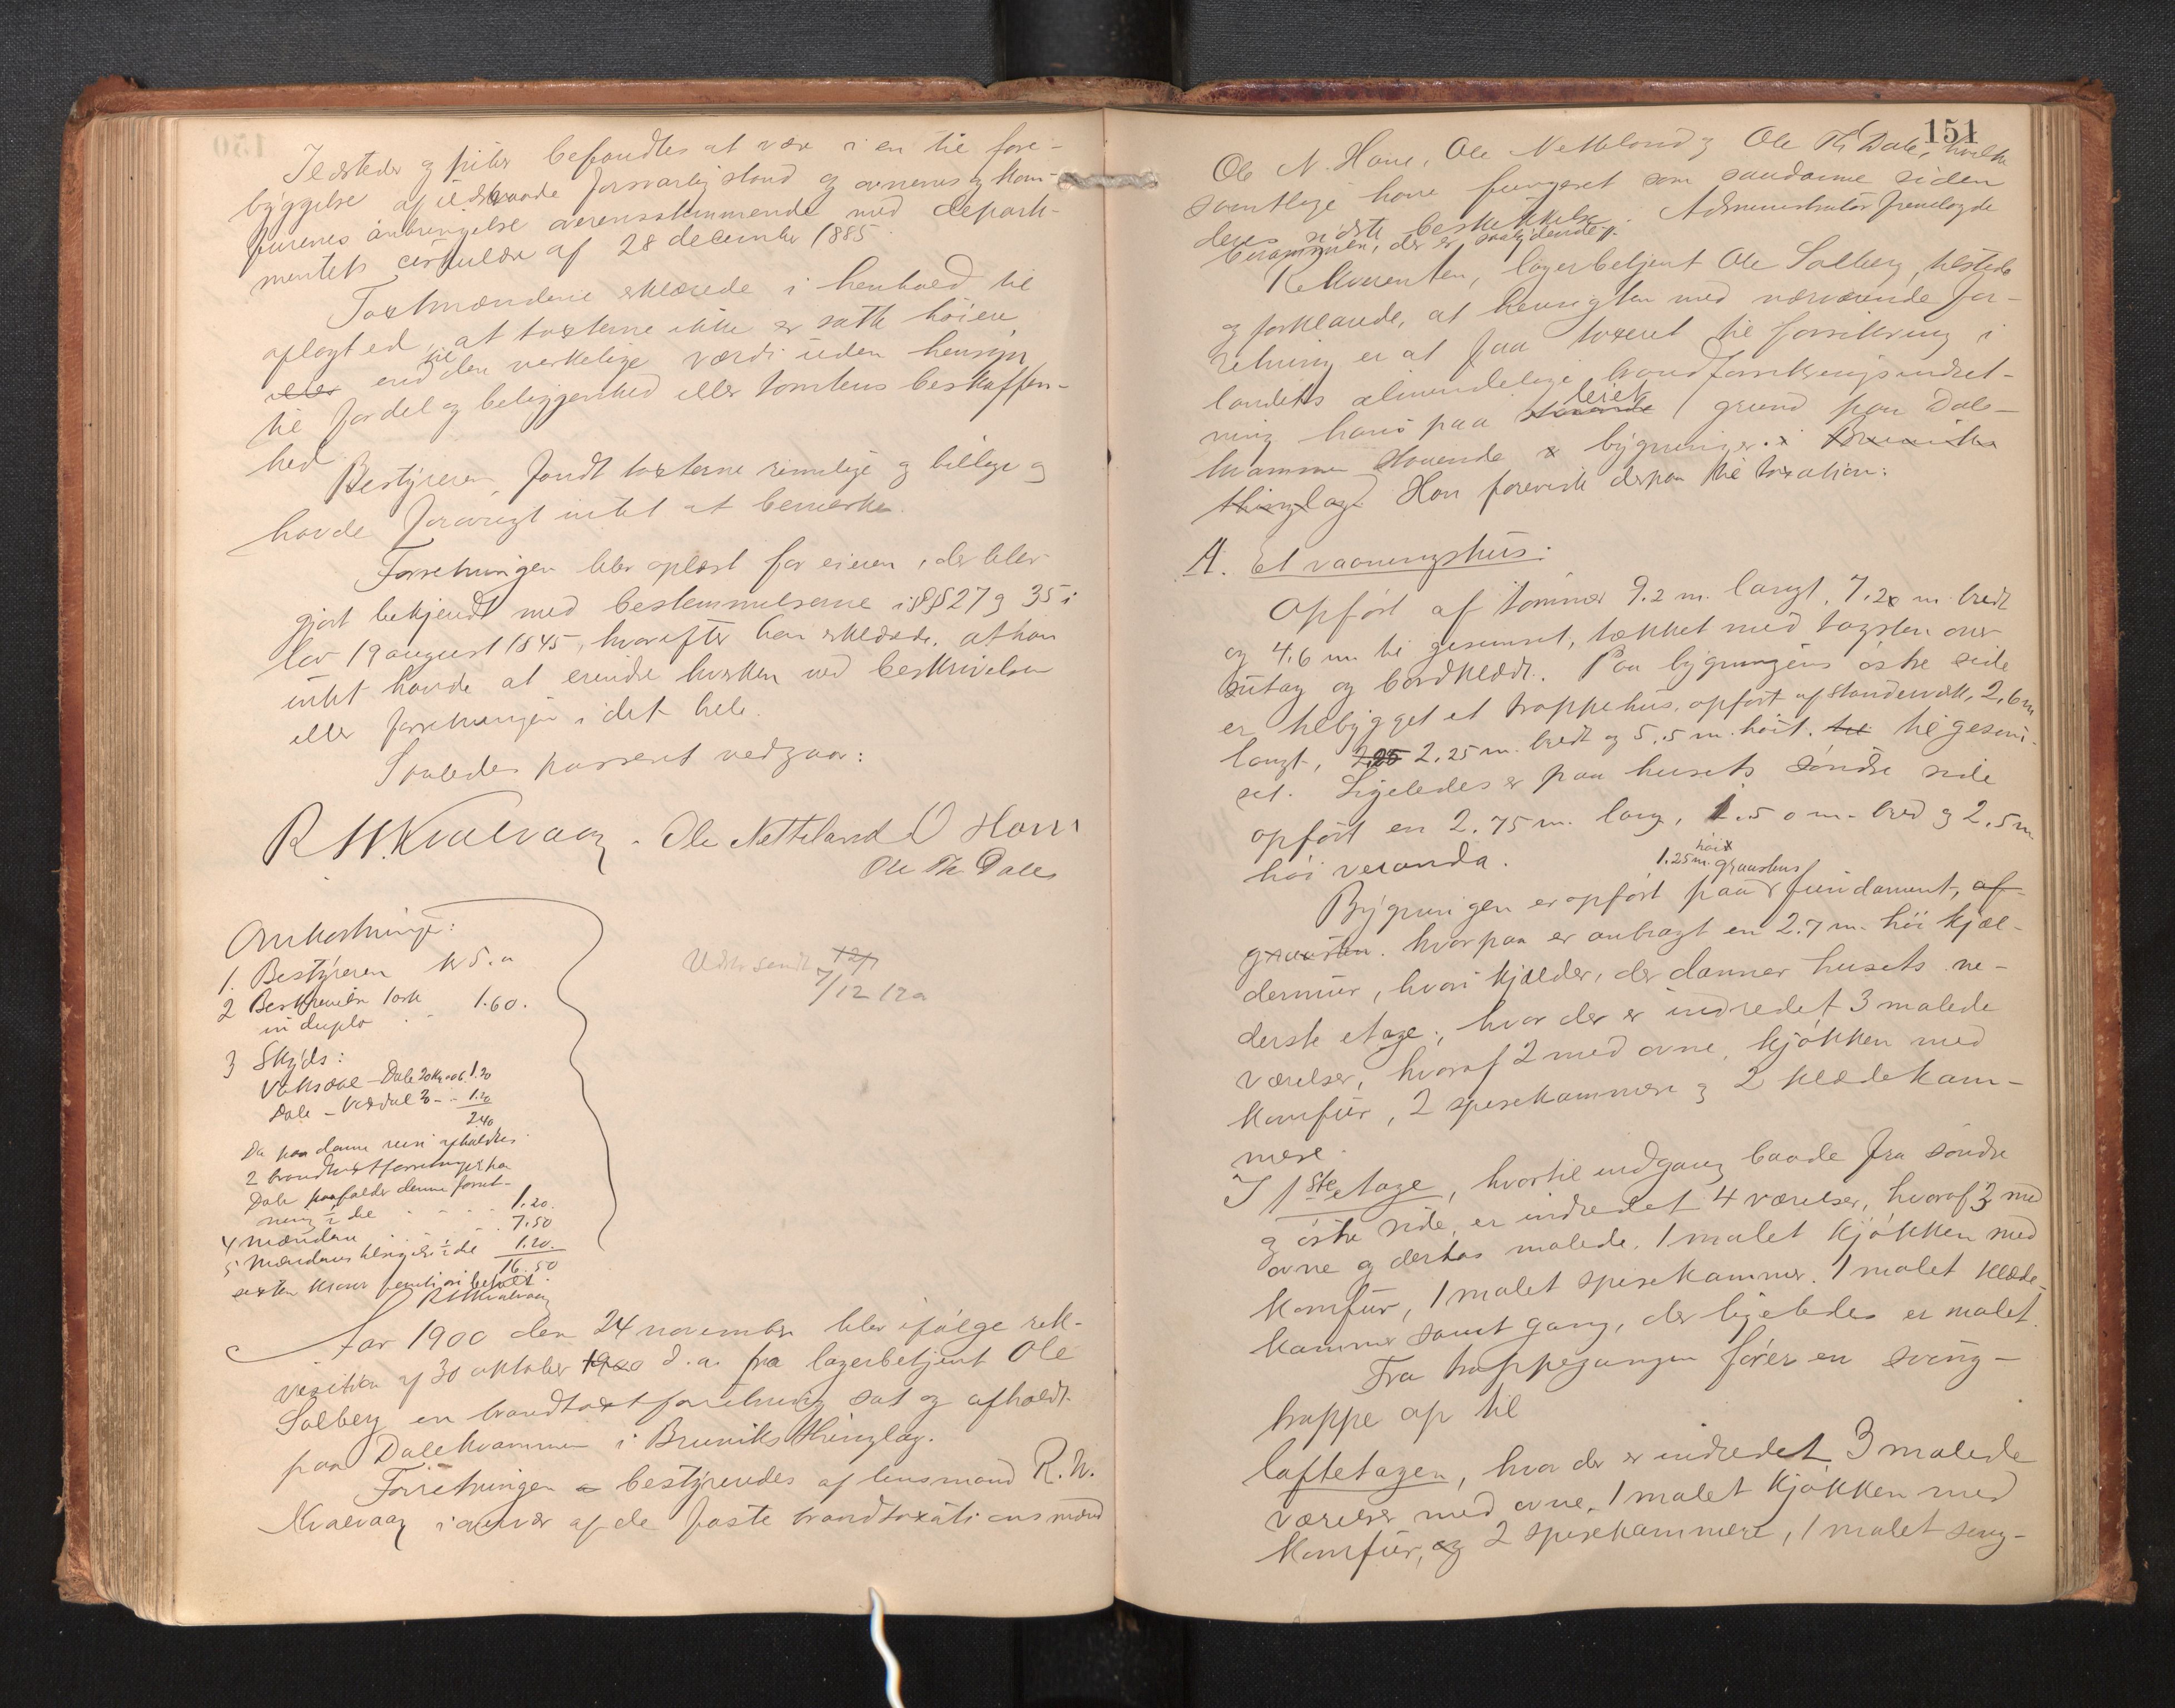 Ildsteder og piber befandtes at være i en til fore-
byggelse af ildsvaade forsvarlig stand og ovnenes og kom-
furenes anbringelse overensstemmende med departe-
mentets cirkulære af 28 december 1885.
Taxtmændene erklærede i henhold til
aflagt ed, at taxterne ikke er satte höiere
eller end til den verkelige værdi uden hensyn
til fordel og beliggenhed eller tomtens beskaffen-
hed.
Bestyreren fandt taxterne rimelige og billige og
havde forövrigt intet at bemerke.
Forretningen blev oplæst for eieren, der blev
gjort bekjendt med bestemmelserne i §§ 27 og 35 i
lov 19 august 1845, hvorefter han erklærede, at han
intet havde at erindre hverken ved beskrivelsen
eller forretningen i det hele.
Saaledes passeret vedgaar:
R N. Kvalvaag. Ole Nætteland O Horn
Ole Th Dale
Omkostninger:
1. Bestyreren kr 5.00
2 Beskrivelse 1 ark
in duplo 1.60.
3 Skyds:
Vaksdal – Dale 20 km à 06. 1.20
Dale – Vaksdal 20 - - 1.20
2.40
Da paa denne reise afholdtes
2 brandtaxtforretninger paa
Dale paafalder denne forret-
ning ½ del 1.20.
4 Mændene 7.50
5 Mændenes tilsigelse ½ del 1.20.
16.50
sexten kroner femti öre betalt.
RNKvalvaag
Udskr. sendt
7/12 1900
Aar 1900 den 24 november blev ifölge rek-
visition af 30 oktober 1900 d.a. fra lagerbetjent Ole
Solberg en brandtaxtforretning sat og afholdt
paa Dalekvammen i Bruviks thinglag.
Forretningen bestyredes af lensmand R. N.
Kvalvaag i overvær af de faste brandtaxationsmænd
151
Ole N. Horne, Ole Netteland og Ole Th Dale, hvilke
samtlige have fungeret som saadanne siden
deres sidste beskikkelse. Administrator fremlagde
berammelsen, der er saalydende //.
Rekvirenten, lagerbetjent Ole Solberg, tilstede
og forklarede, at hensigten med nærværende for-
retning er at faa taxeret til forsikring i
landets almindelige brandforsikringsindret-
ning hans paa leiet grund paa Dale-
kvammen staaende bygninger. i Bruviks
thinglag. Han foreviste derpaa til taxation:
A. Et vaaningshus:
Opfört af tömmer 9.2 m. langt, 7.20 m bredt
og 4.6 m til gesimset, tækket med tagsten over
sutag og bordklædt. Paa bygningens östre side
er tilbygget et trappehus, opfört af standerværk, 2,6 m
langt, 2.25 2.25 m. bredt og 5.5 m. höit. til til gesim-
set. Ligeledes er paa husets söndre side
opfört en 2.75 m. lang, 1.50 m. bred og 2.5 m
höi veranda.
1.25 m. höit graastens
Bygningen er opfört paa fundament, af
graasten. hvorpaa er anbragt en 2.7 m. höi kjæl-
dermur, hvori kjælder, der danner husets ne-
derste etage, hvor der er indredet 3 malede
værelser, hvoraf 2 med ovne, kjökken med
komfur, 2 spisekammere og 2 klædekam-
mere.
I 1ste etage, hvortil indgang baade fra söndre
og östre side, er indredet 4 værelser, hvoraf 3 med
ovne og derhos malede. 1 malet kjökken med
komfur, 1 malet spisekammer. 1 malet klæde-
kammer samt gang, der ligeledes er malet.
Fra trappegangen förer en sving-
trappe op til
loftetagen, hvor der er indredet 3 malede
værelser med ovne, 1 malet kjökken med
komfur, og 2 spisekammere, 1 malet seng-